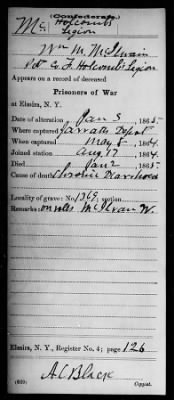 (Confederate.)
Mc Holcombs
Legion
Wm M. McIlwain
Pvt Co. F. Holcomb's Legion
Appears on a record of deceased
Prisoners of War
at Elmira, N. Y.
Date of alteration Jan 3, 1865.
Where captured Jarratts Depot
When captured May 8, 1864.
Joined station Aug 17, 1864.
Died Jan 2, 1865.
Cause of death Chronic Diarrhoea
Locality of grave: No 1369
Remarks: on rolls McIlvan W.
Elmira, N. Y., Register No. 4; page 126
A.C. Black
Copyist.